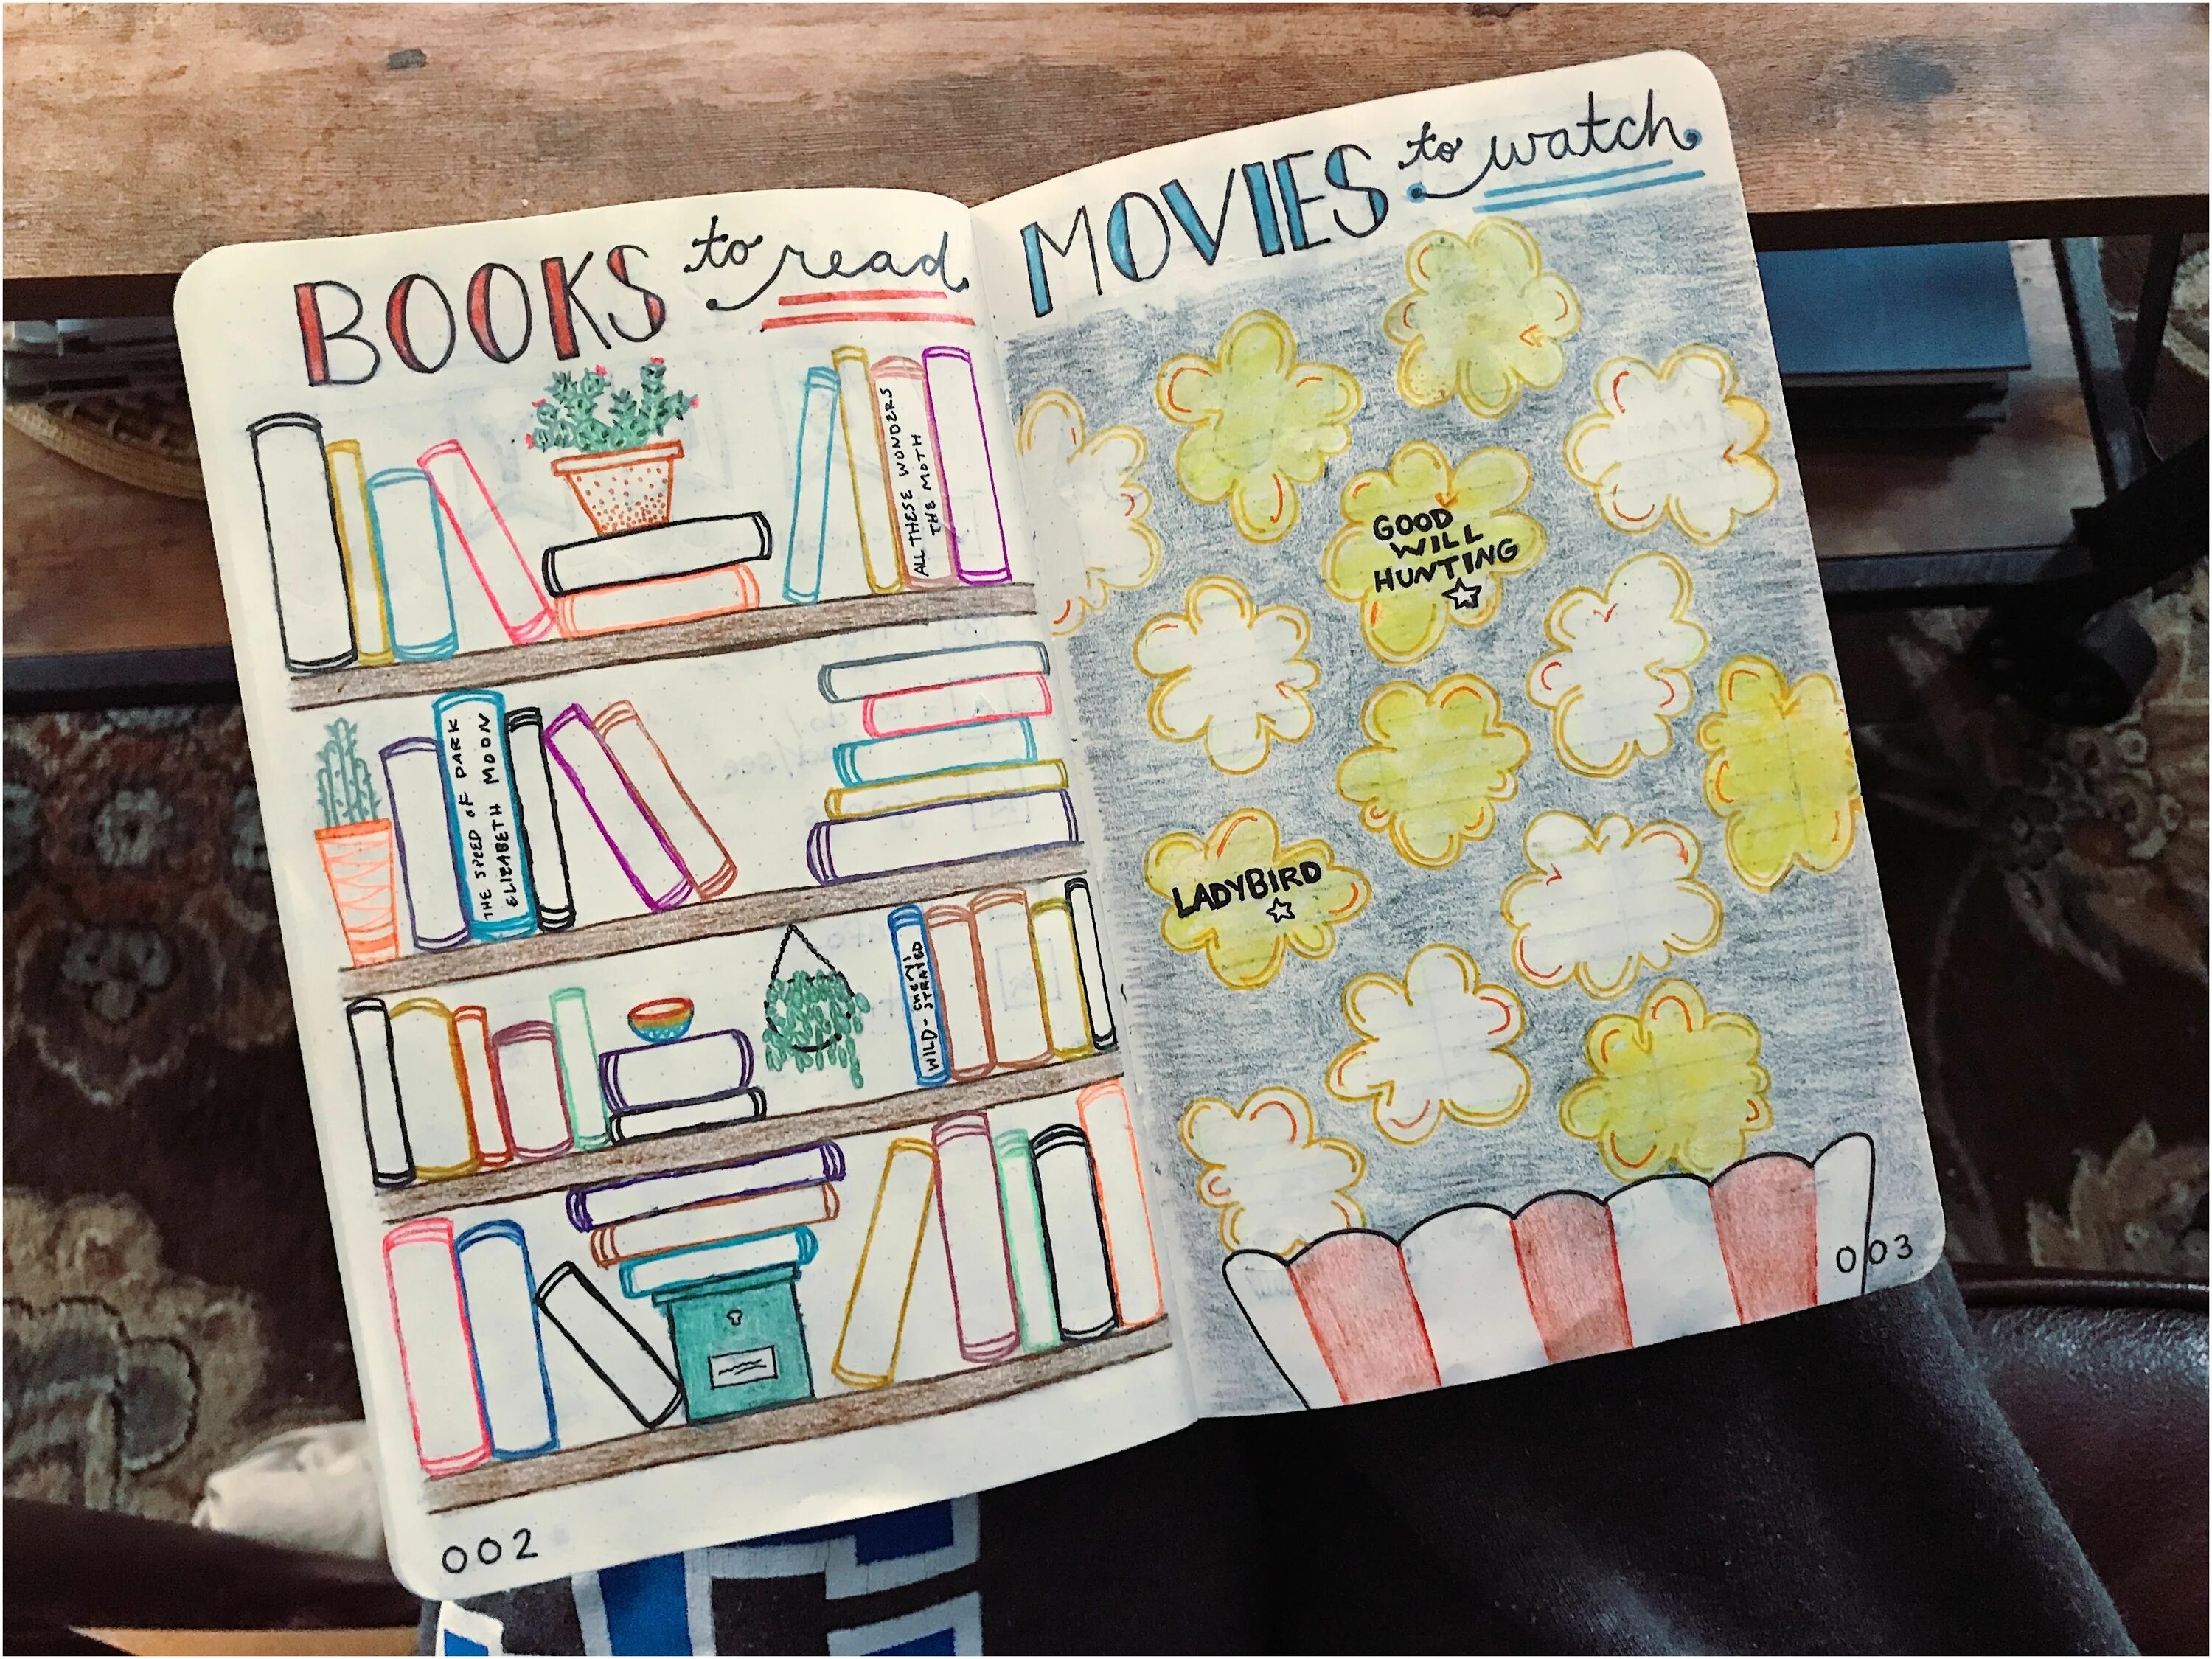 BOOKS to read
ALL THESE WONDERS
THE MOTH
THE SPEED OF DARK
ELIZABETH MOON
WILD - CHERYL
STRAYED
002
MOVIES to watch
GOOD
WILL
HUNTING
LADYBIRD
003